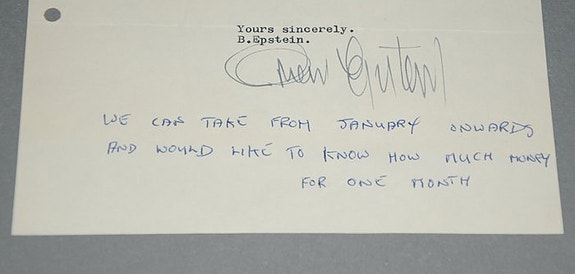 Yours sincerely.
B.Epstein.
Brian Epstein
WE CAN TAKE FROM JANUARY ONWARDS
AND WOULD LIKE TO KNOW HOW MUCH MONEY
FOR ONE MONTH